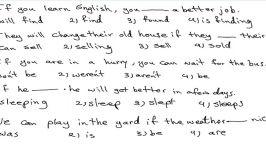 If you learn English, you ____ a better job.
will find 2) find 3) found 4) is finding
They will change their old house if they ___ their
can sell 2) selling 3) sell 4) sold
If you are in a hurry, you can wait for the bus.
don't be 2) weren't 3) aren't 4) be
If he ____. he will get better in a few days.
sleeping 2) sleep 3) slept 4) sleeps
We can play in the yard if the weather ___ nic
was 2) is 3) be 4) are